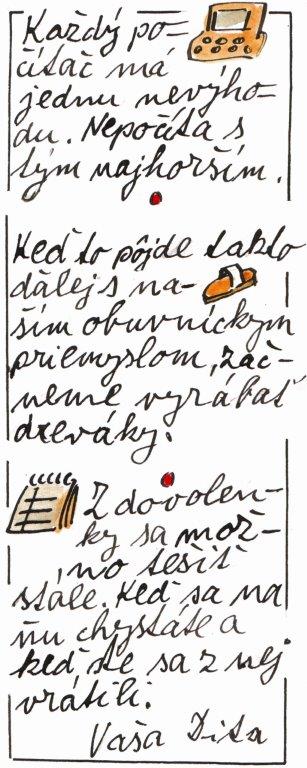 Každý po-
čítač má
jednu nevýho-
du. Nepočíta s
tým najhorším.
Keď to pôjde takto
ďalej s na-
ším obuvníckym
priemyslom, zač-
neme vyrábať
dreváky.
Z dovolen-
ky sa mož-
no tešiť
stále. Keď sa na
ňu chystáte a
keď ste sa z nej
vrátili.
Vaša Dita